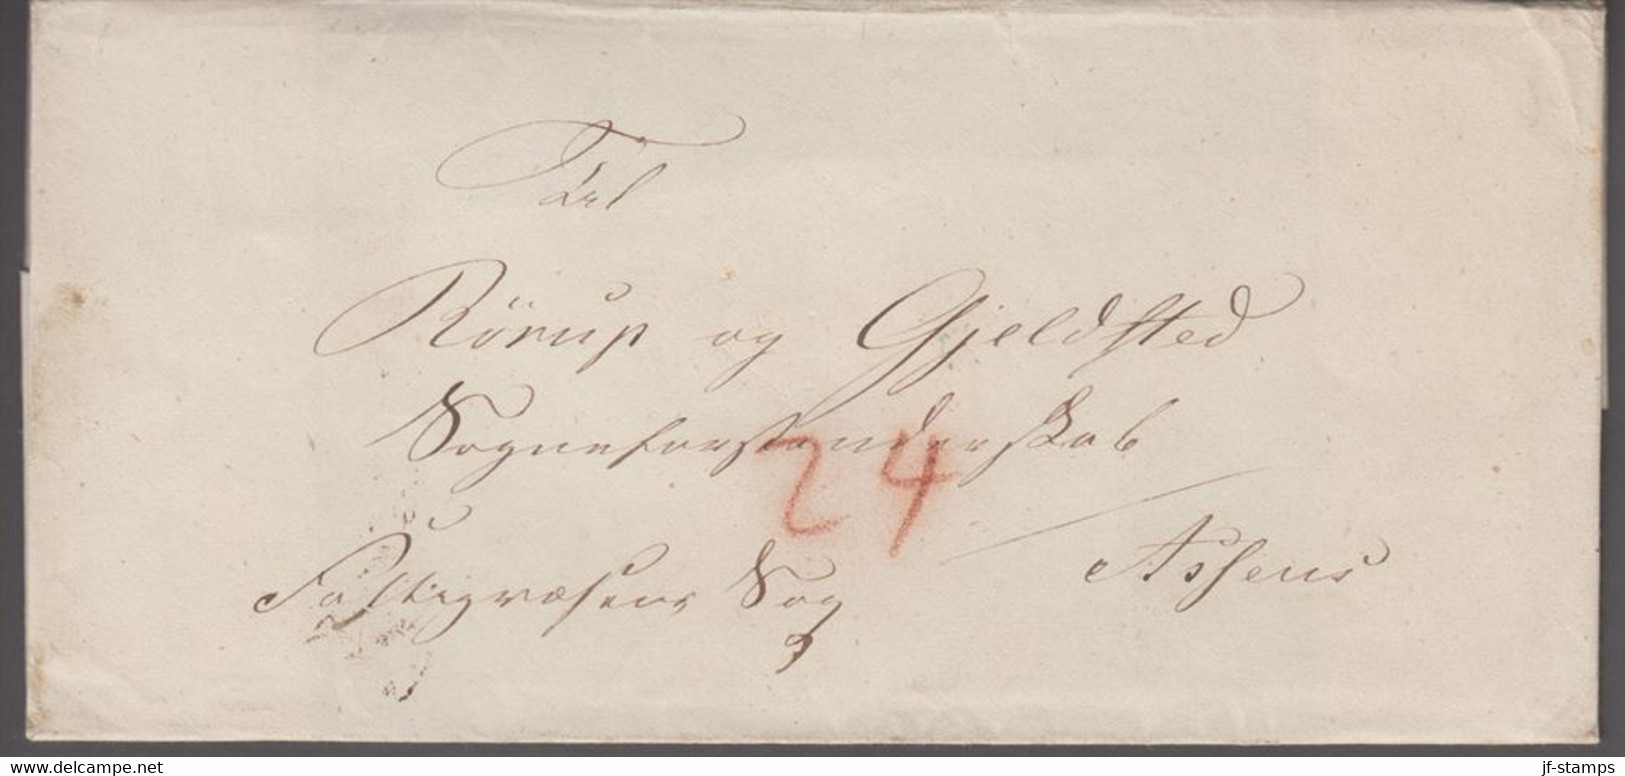 Til
Rörup og Gjeldsted
Sogneforstanderskab
24
Assens
Fattigvæsens Sag
www.delcampe.net
jf-stamps